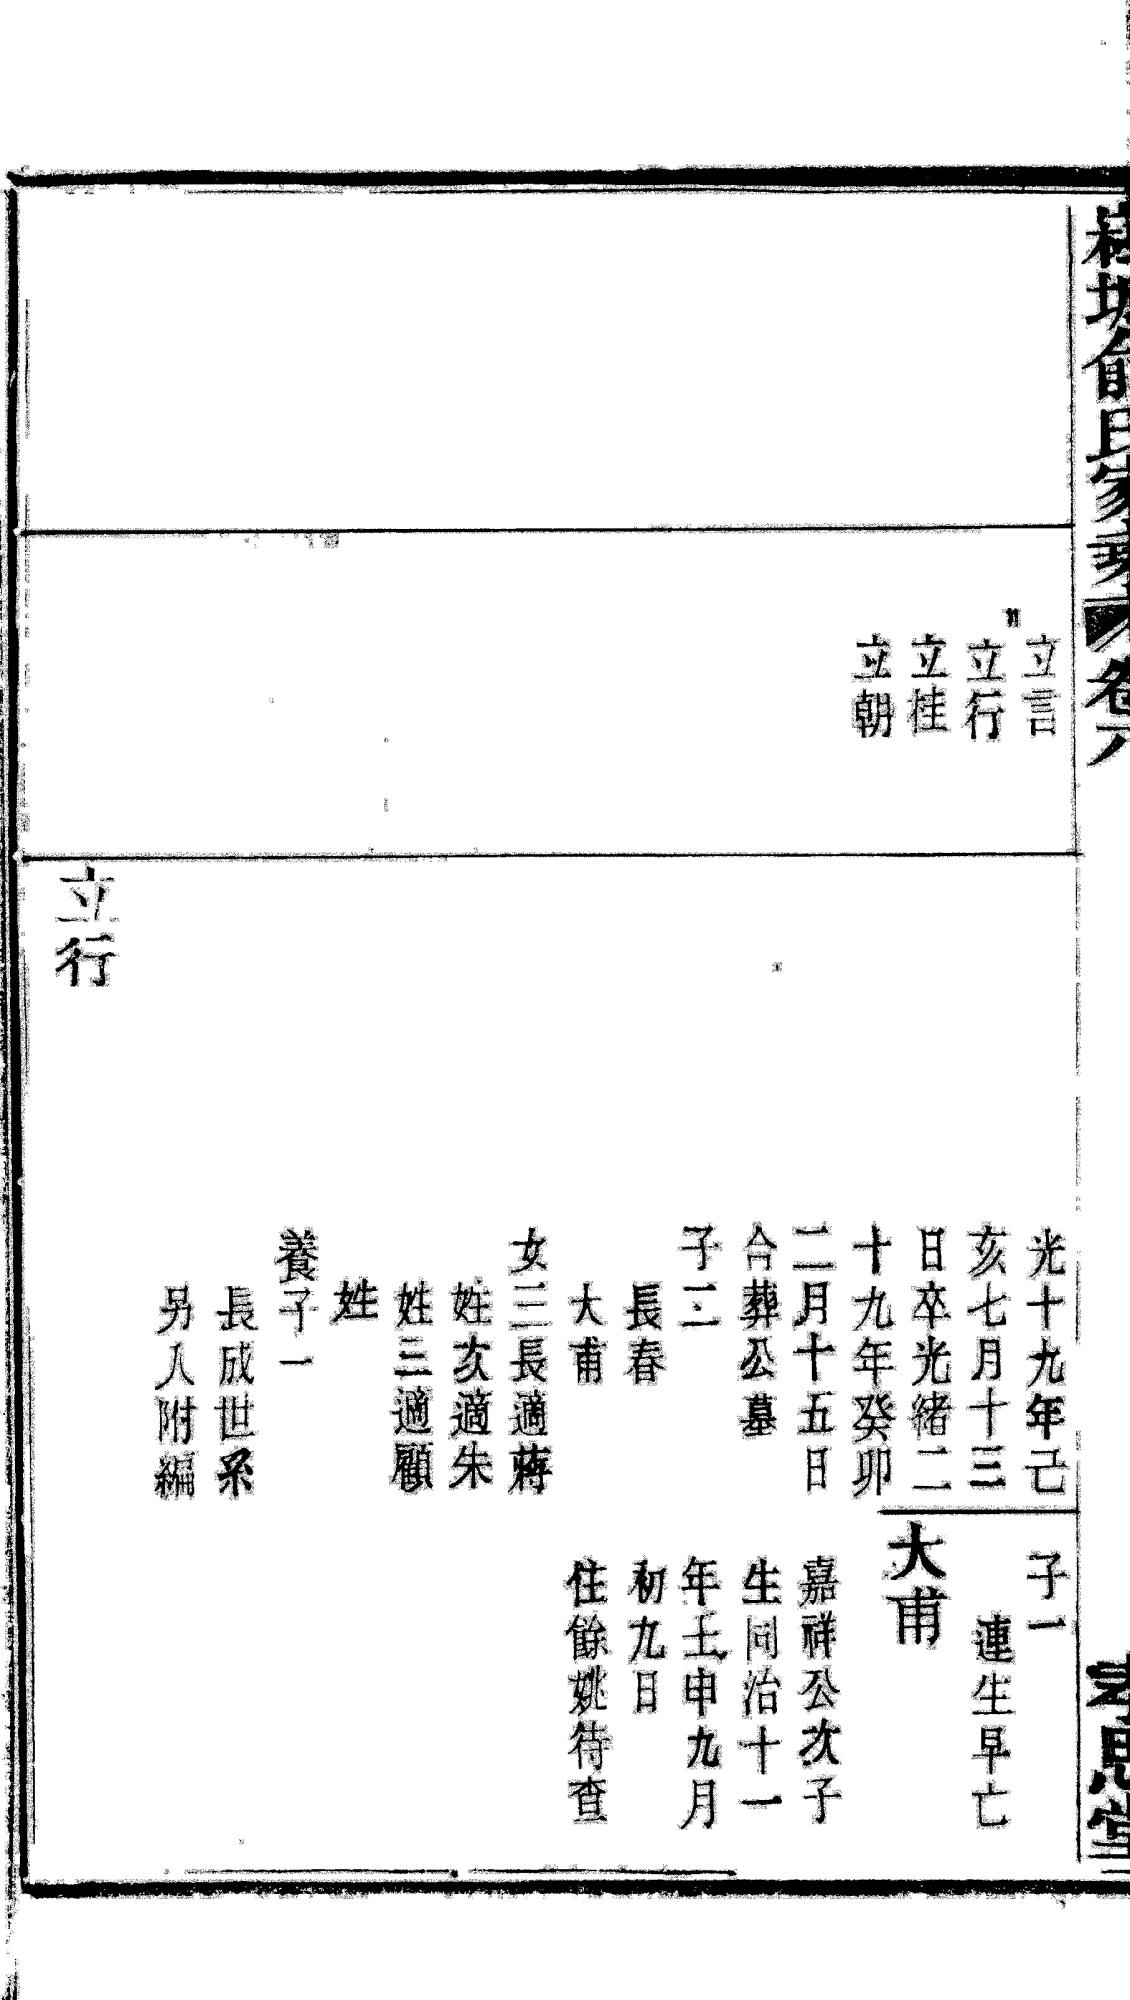 俞氏家
卷六
孝思堂
立言
立行
立桂
立朝
光十九年己
亥七月十三
日卒光緒二
十九年癸卯
二月十五日
合葬公墓
子二
長春
大甫
女三長適蔣
姓次適朱
姓三適顧
姓
養子一
長成世系
另入附編
子一
連生早亡
大甫
嘉祥公次子
生同治十一
年壬申九月
初九日
住餘姚待查
立行